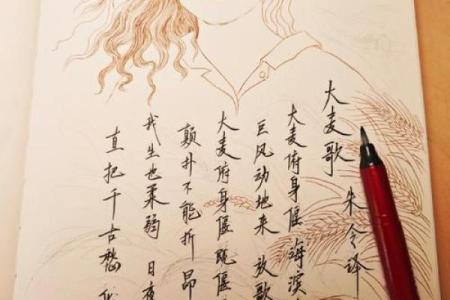 大麦歌
朱令译
大麦俯身偃 海滨
巨风动地来 放歌
大麦俯身偃 既偃
颠扑不能折 昂
我生也柔弱 日夜
直把千古愁